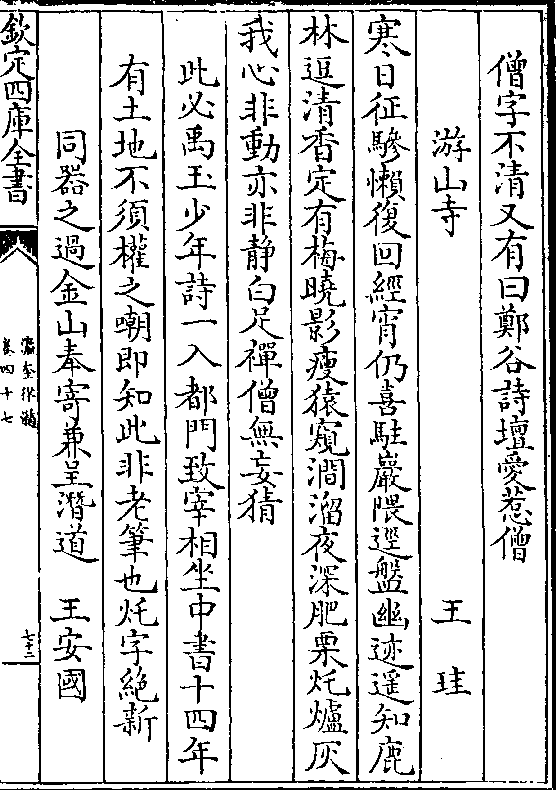 僧字不清又有曰鄭谷詩壇愛惹僧
游山寺 王珪
寒日征驂懶復回經宵仍喜駐巖隈逕盤幽迹遥知鹿
林逗清香定有梅曉影瘦猿窺澗溜夜深肥栗灹爐灰
我心非動亦非静白足禪僧無妄猜
此必禹玉少年詩一入都門致宰相坐中書十四年
有土地不須權之嘲即知此非老筆也灹字絶新
同器之過金山奉寄兼呈潛道 王安國
欽定四庫全書
瀛奎律髓
卷四十七
七十二